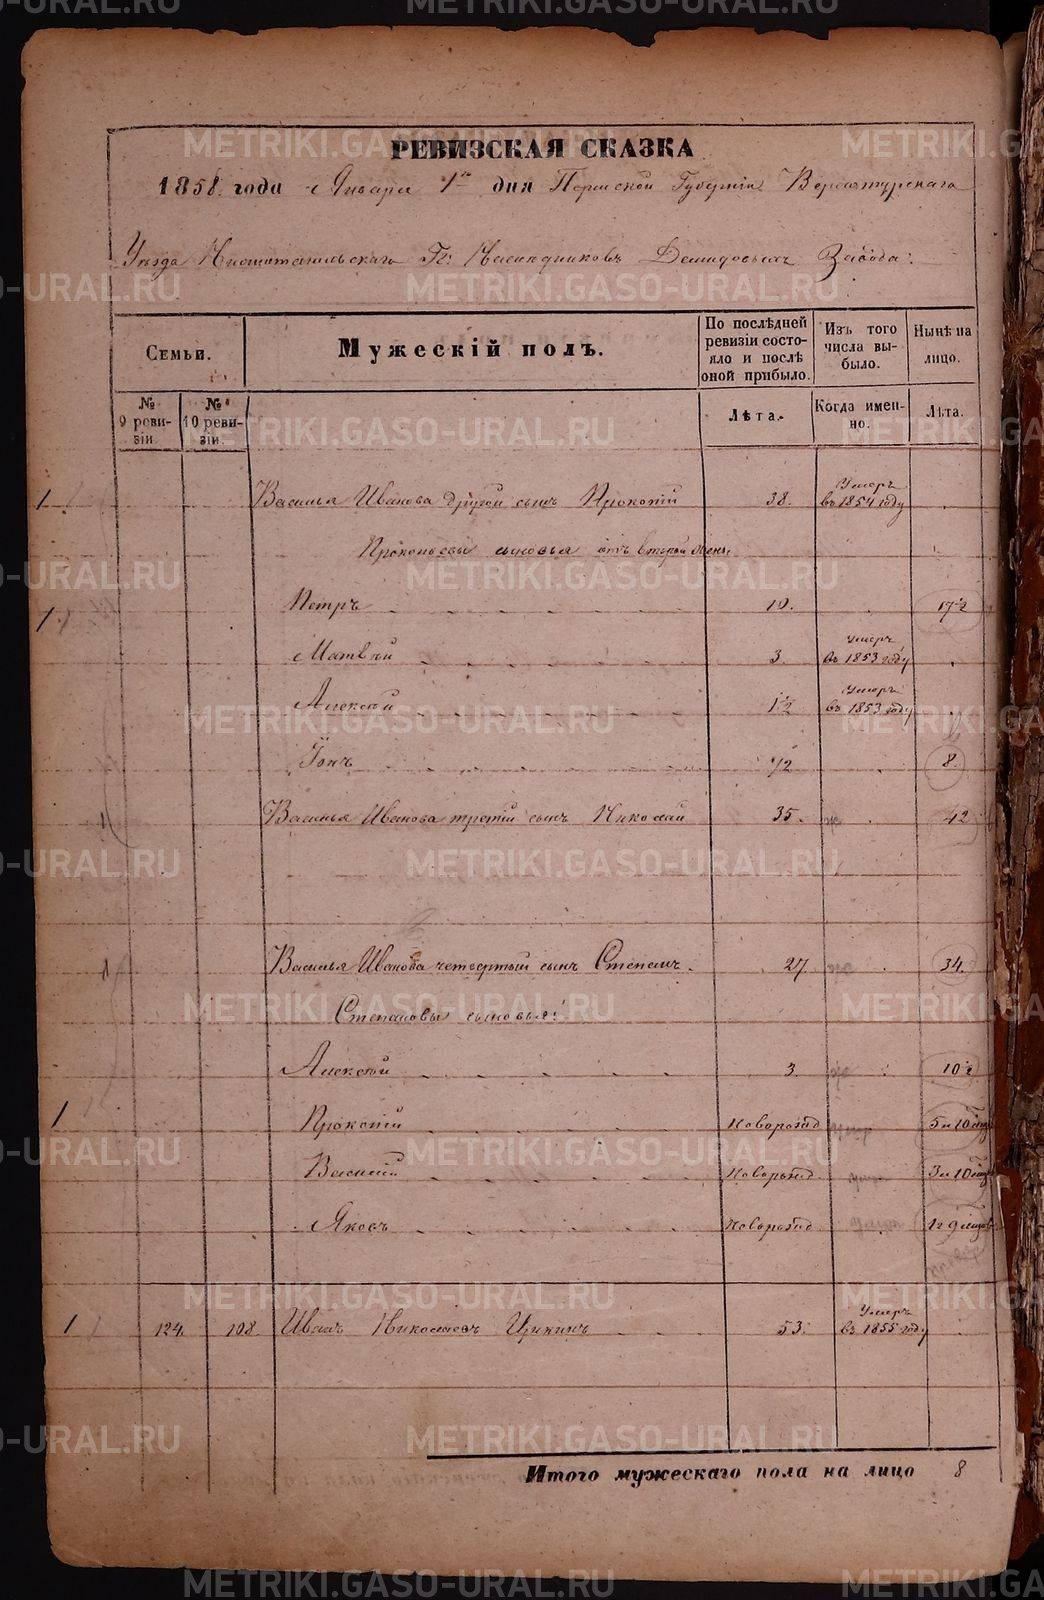 РЕВИЗСКАЯ СКАЗКА
1858 года Января 1го дня Пермской Губернiи Верхотурскаго
Уѣзда Нижнетагильскаго Гг: Наслѣдниковъ Демидовыхъ Завода:
Семьи.
Мужескій полъ.
По послѣдней ревизіи состояло и послѣ оной прибыло.
Изъ того числа выбыло.
Нынѣ на лицо.
№ 9 ревизіи.
№ 10 ревизіи.
Лѣта.
Когда именно.
Лѣта.
1 Василья Иванова другой сынъ Прокопій 38. Умеръ въ 1854 году
Прокопьевы сыновья отъ второй жены
1 Петръ 10. 17 1/2
Матвѣй 3. умеръ въ 1853 году
Алексѣй 1 1/2 Умеръ въ 1853 году
Іонъ 1/2 8.
1 Василья Иванова третій сынъ Николай 35. 42
1 Василья Иванова четвертый сынъ Степанъ. 27. 34.
Степановы сыновья:
Алексѣй 3. 10 1/2
1 Прокопій Новорожд
Василій Новорожд
Яковъ Новорожд
1 124. 108. Иванъ Николаевъ 53. Умеръ въ 1855 году
Итого мужескаго пола на лицо 8
METRIKI.GASO-URAL.RU